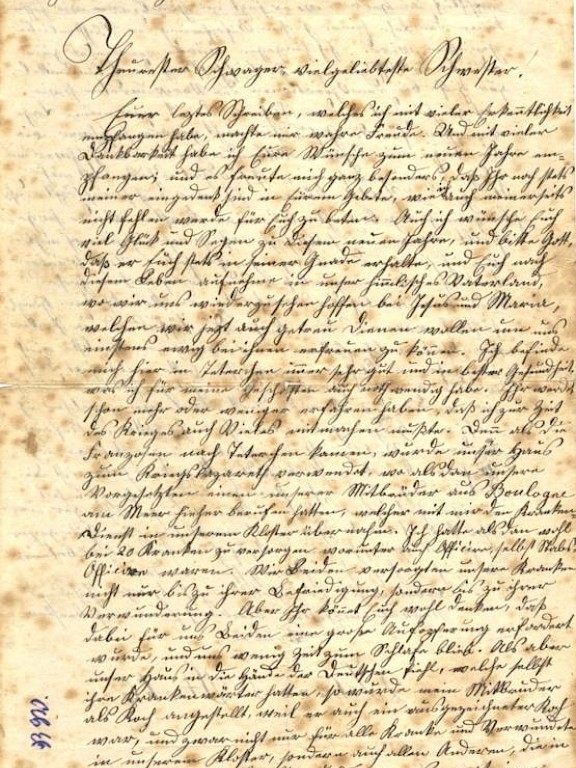 Theuerster Schwager, vielgeliebteste Schwester.
Euer leztes Schreiben, welches ich mit vieler Erkenntlichkeit
empfangen habe, machte mir wahre Freude. Und mit vieler
Dankbarkeit habe ich Eure Wünsche zum neuen Jahre em-
pfangen; und es freute mich ganz besonders, daß Ihr noch stets
meiner eingedenk seid in Eurem Gebete, wie auch meinerseits
nicht fehlen werde für Euch zu beten. Auch ich wünsche Euch
viel Glük und Segen zu diesem neuen Jahre, und bitte Gott,
daß er Euch stets in seiner Gnade erhalte, und Euch nach
diesem Leben aufnehme in unser himlisches Vaterland,
wo wir uns wiederzusehen hoffen bei Jesus und Maria,
welchen wir jezt auch getreu dienen wollen um uns
einstens ewig bei ihnen erfreuen zu können. Ich befinde
mich hier in Teterchen imer sehr gut und in bester Gesundheit,
was ich für meine Geschäften auch nothwendig habe. Ihr werdet
schon mehr oder weniger erfahren haben, daß ich zur Zeit
des Krieges auch Vieles mitmachen mußte. Denn als die
Franzosen nach Teterchen kamen, wurde unser Haus
zum Kriegslazareth verwendet, wo alsdan unsere
Vorgesezten einen unserer Mitbrüder aus Boulogne
am Meer hieher berufen hatten, welcher mit mir den Kranken
Dienst in unserem Kloster übernahm. Ich hatte alsdan wohl
bei 20 Kranken zu versorgen worunter auch Officire, selbst Stabs
Officire waren. Wir Beiden versorgten unsere Kranken
nicht nur bis zu ihrer Befriedigung, sondern bis zu ihrer
Verwunderung. Aber Ihr könnet Euch wohl denken, daß
dabei für uns Beiden eine große Aufopferung erfordert
wurde, und uns wenig Zeit zum Schlafe blieb. Als aber
unser Haus in die Hände der Deutschen fiel, welche selbst
ihre Krankenwärter hatten, so wurde mein Mitbruder
als Koch angestellt, weil er auch ein ausgezeichneter Koch
war, und zwar nicht nur für alle Kranke und Verwundete
in unserem Kloster, sondern auch allen Anderen, die in